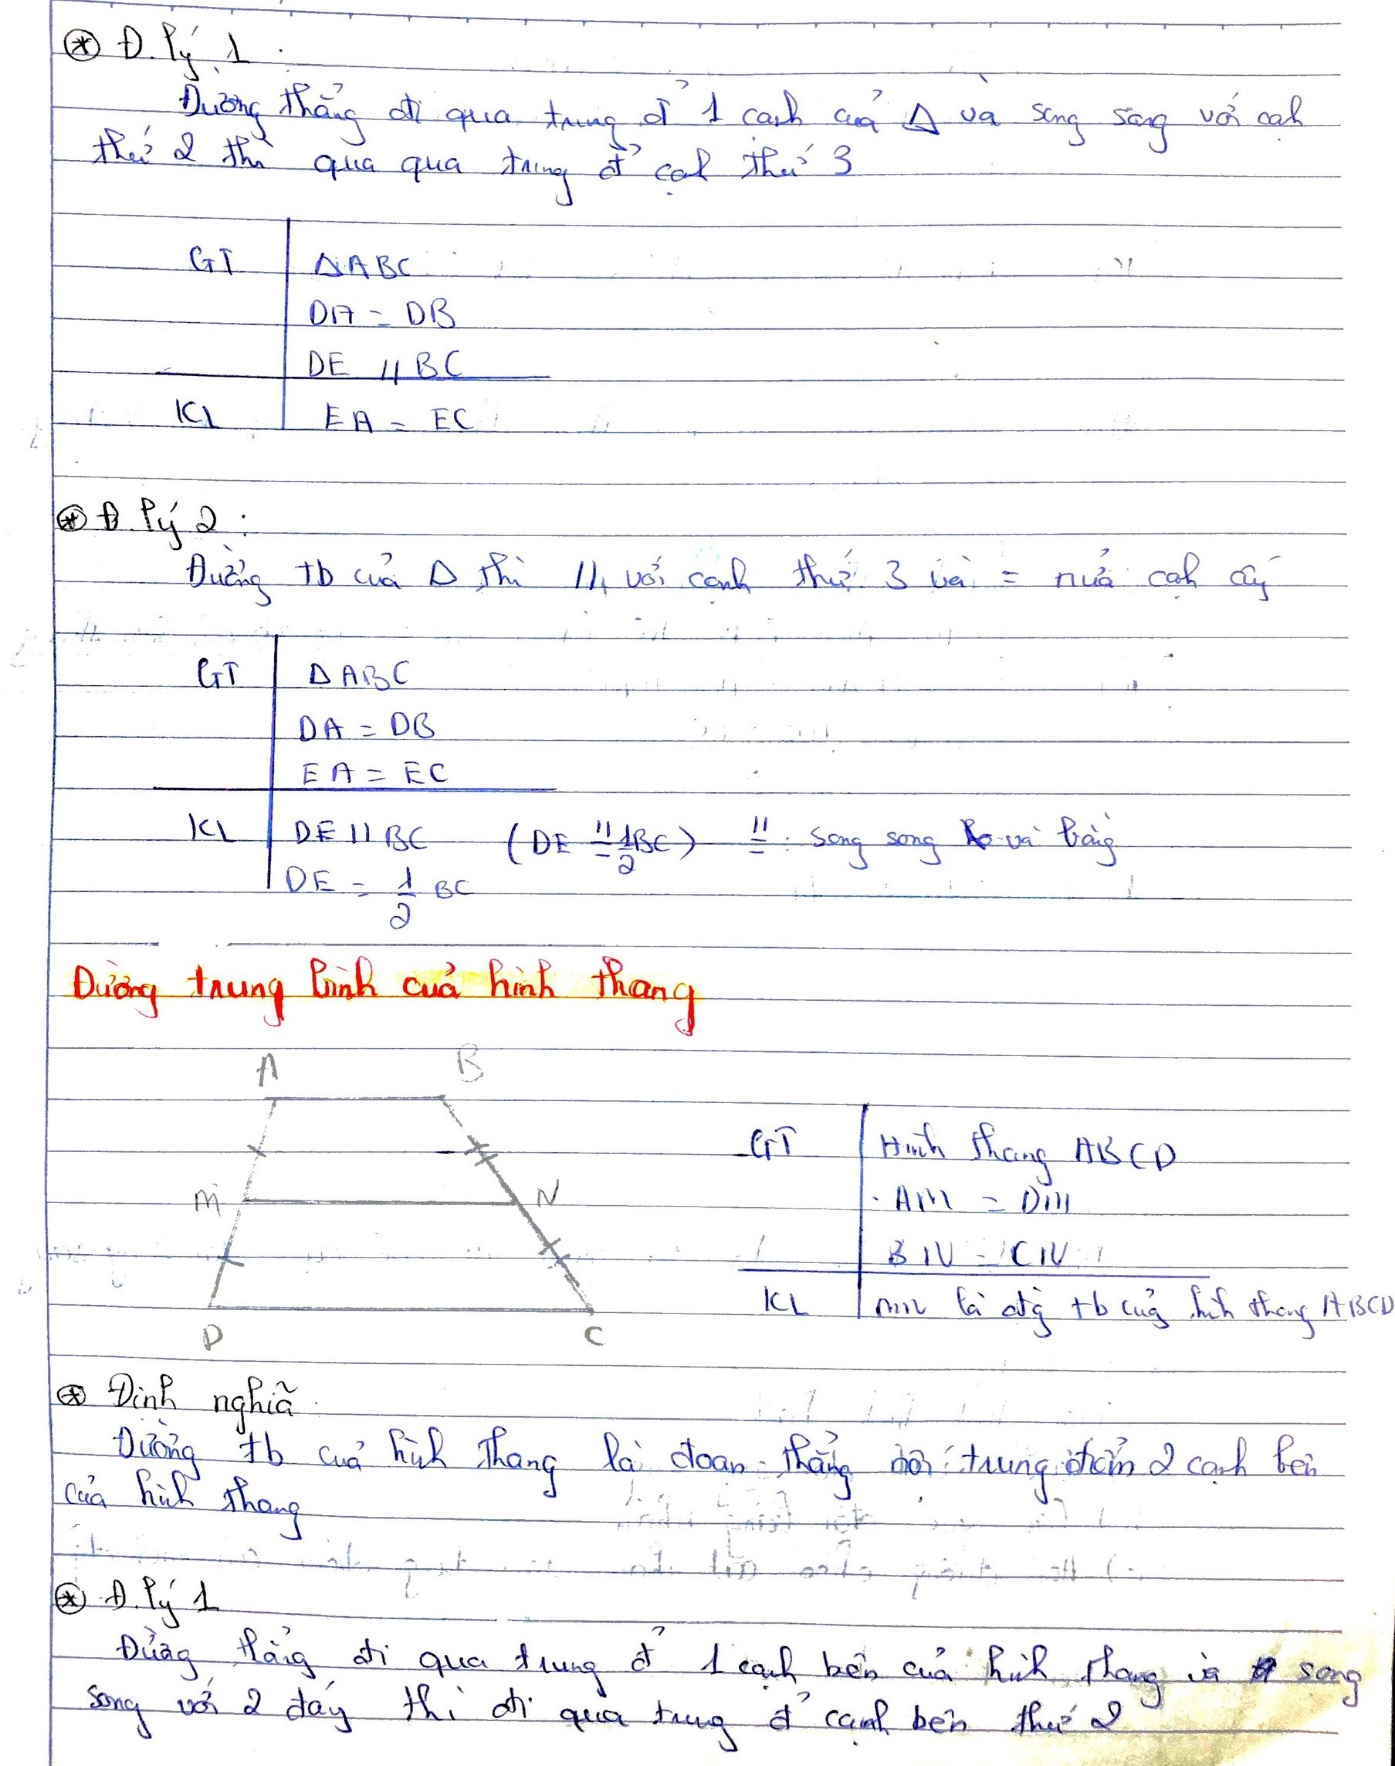 ⊛ Đ. lý 1 :
Đường thẳng đi qua trung đ' 1 cạnh của Δ và song song với cạh
thứ 2 thì qua qua trung đ' cạh thứ 3
GT ΔABC
DA = DB
DE // BC
KL EA = EC
⊛ Đ. lý 2 :
Đường tb của Δ thì // với cạnh thứ 3 và = nửa cạh ấy
GT Δ ABC
DA = DB
EA = EC
KL DE // BC (DE //= 1/2 BC) //= : song song và bằng
DE = 1/2 BC
Đường trung bình của hình thang
A B
M N
D C
GT Hình thang ABCD
AM = DM
BN = CN
KL MN là đtg tb của hình thang ABCD
⊛ Định nghĩa
Đường tb của hình thang là đoạn thẳng nối trung điểm 2 cạnh bên
của hình thang
⊛ Đ. lý 1
Đường thẳng đi qua trung đ' 1 cạnh bên của hình thang và song
song với 2 đáy thì đi qua trung đ' cạnh bên thứ 2